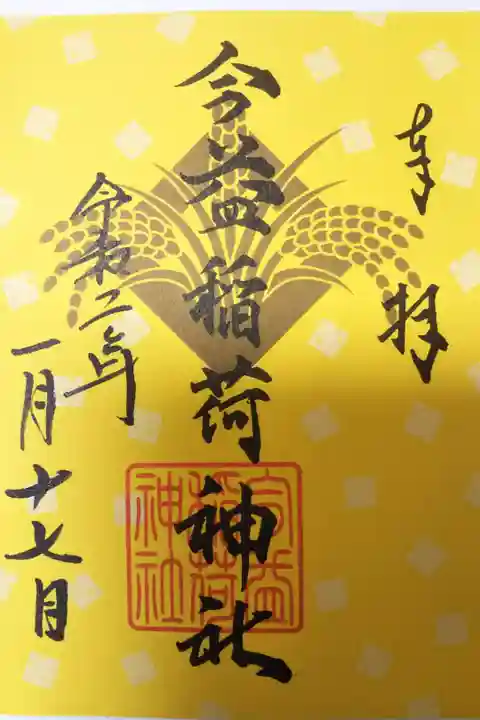 奉拝
今益稲荷神社
令和二年
一月十七日
今益
稲荷
神社